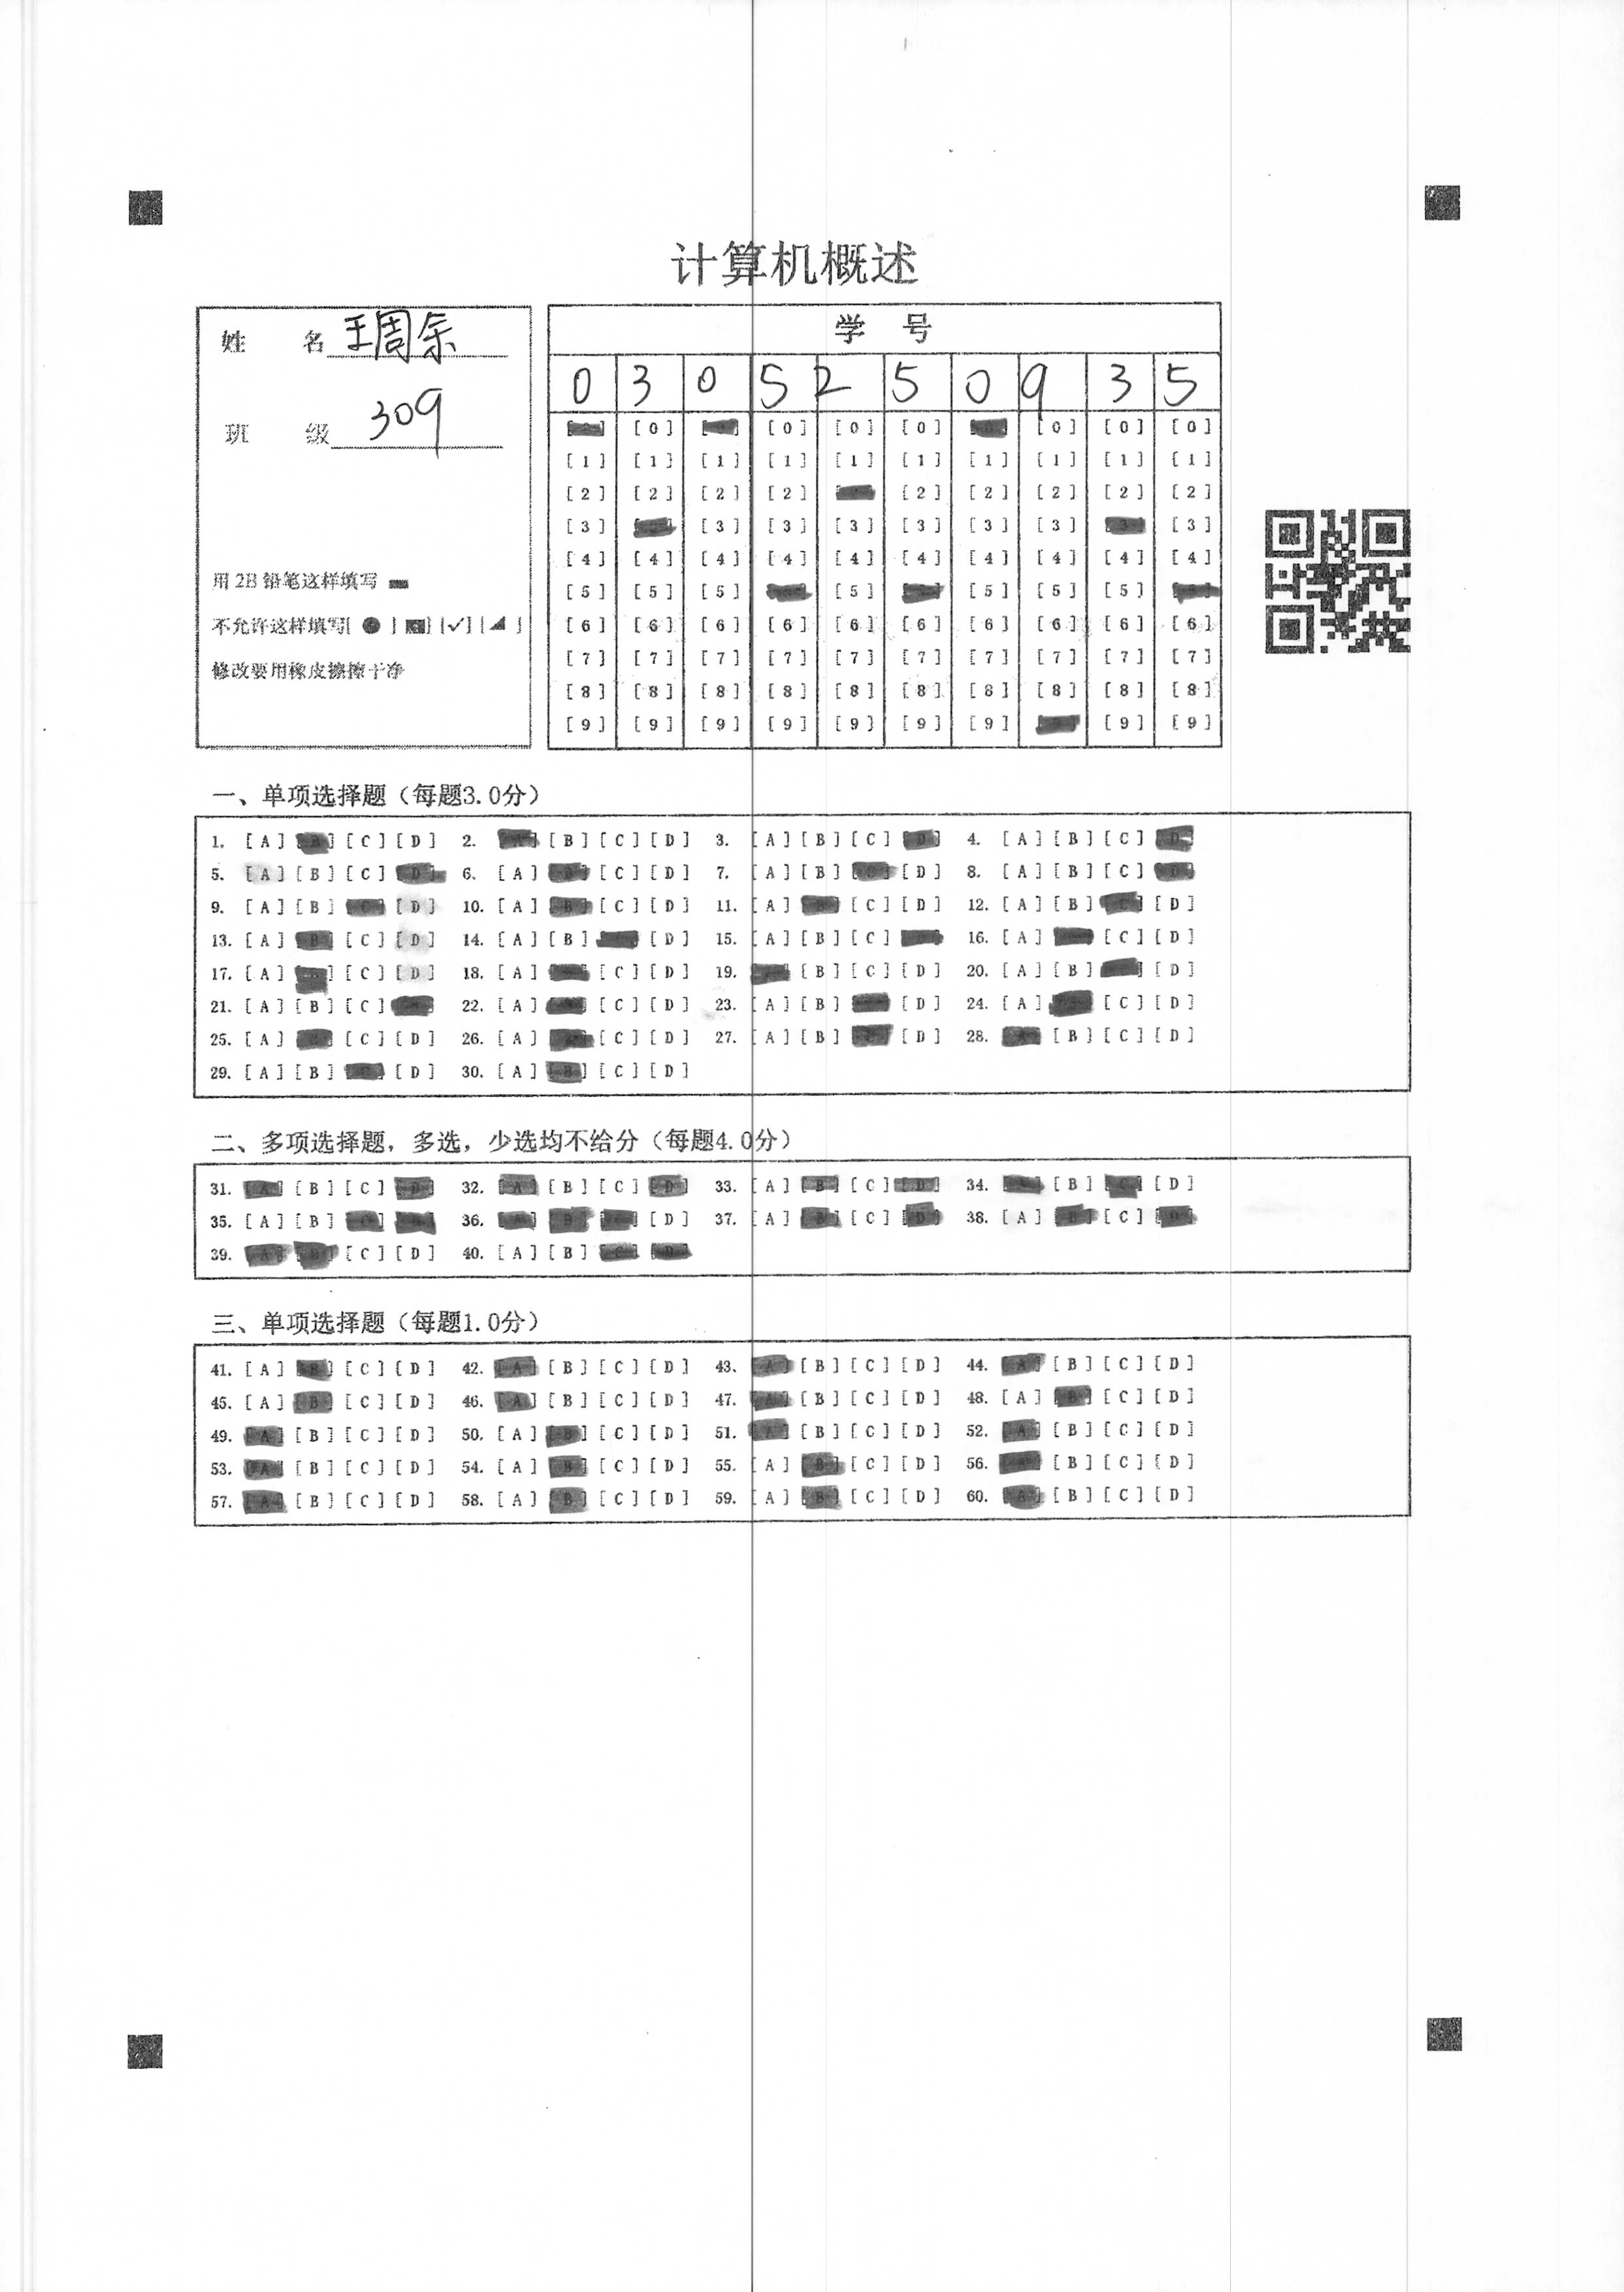 计算机概述
姓 名 王周余
班 级 309
用2B铅笔这样填写
不允许这样填写[ ● ] [ ] [✓] [ ]
修改要用橡皮擦擦干净
学 号
0 3 0 5 2 5 0 9 3 5
[0] [0] [0] [0] [0] [0] [0]
[1] [1] [1] [1] [1] [1] [1] [1] [1] [1]
[2] [2] [2] [2] [2] [2] [2] [2] [2]
[3] [3] [3] [3] [3] [3] [3] [3]
[4] [4] [4] [4] [4] [4] [4] [4] [4] [4]
[5] [5] [5] [5] [5] [5] [5]
[6] [6] [6] [6] [6] [6] [6] [6] [6] [6]
[7] [7] [7] [7] [7] [7] [7] [7] [7] [7]
[8] [8] [8] [8] [8] [8] [8] [8] [8] [8]
[9] [9] [9] [9] [9] [9] [9] [9] [9]
一、单项选择题（每题3.0分）
1. [A] [C] [D] 2. [B] [C] [D] 3. [A] [B] [C] 4. [A] [B] [C]
5. [A] [B] [C] 6. [A] [C] [D] 7. [A] [B] [D] 8. [A] [B] [C]
9. [A] [B] [D] 10. [A] [C] [D] 11. [A] [C] [D] 12. [A] [B] [D]
13. [A] [C] [D] 14. [A] [B] [D] 15. [A] [B] [C] 16. [A] [C] [D]
17. [A] [C] [D] 18. [A] [C] [D] 19. [B] [C] [D] 20. [A] [B] [D]
21. [A] [B] [C] 22. [A] [C] [D] 23. [A] [B] [D] 24. [A] [C] [D]
25. [A] [C] [D] 26. [A] [C] [D] 27. [A] [B] [D] 28. [B] [C] [D]
29. [A] [B] [D] 30. [A] [C] [D]
二、多项选择题，多选，少选均不给分（每题4.0分）
31. [B] [C] 32. [B] [C] 33. [A] [C] 34. [B] [D]
35. [A] [B] 36. [D] 37. [A] [C] 38. [A] [C]
39. [C] [D] 40. [A] [B]
三、单项选择题（每题1.0分）
41. [A] [C] [D] 42. [B] [C] [D] 43. [B] [C] [D] 44. [B] [C] [D]
45. [A] [C] [D] 46. [B] [C] [D] 47. [B] [C] [D] 48. [A] [C] [D]
49. [B] [C] [D] 50. [A] [C] [D] 51. [B] [C] [D] 52. [B] [C] [D]
53. [B] [C] [D] 54. [A] [C] [D] 55. [A] [C] [D] 56. [B] [C] [D]
57. [B] [C] [D] 58. [A] [C] [D] 59. [A] [C] [D] 60. [B] [C] [D]